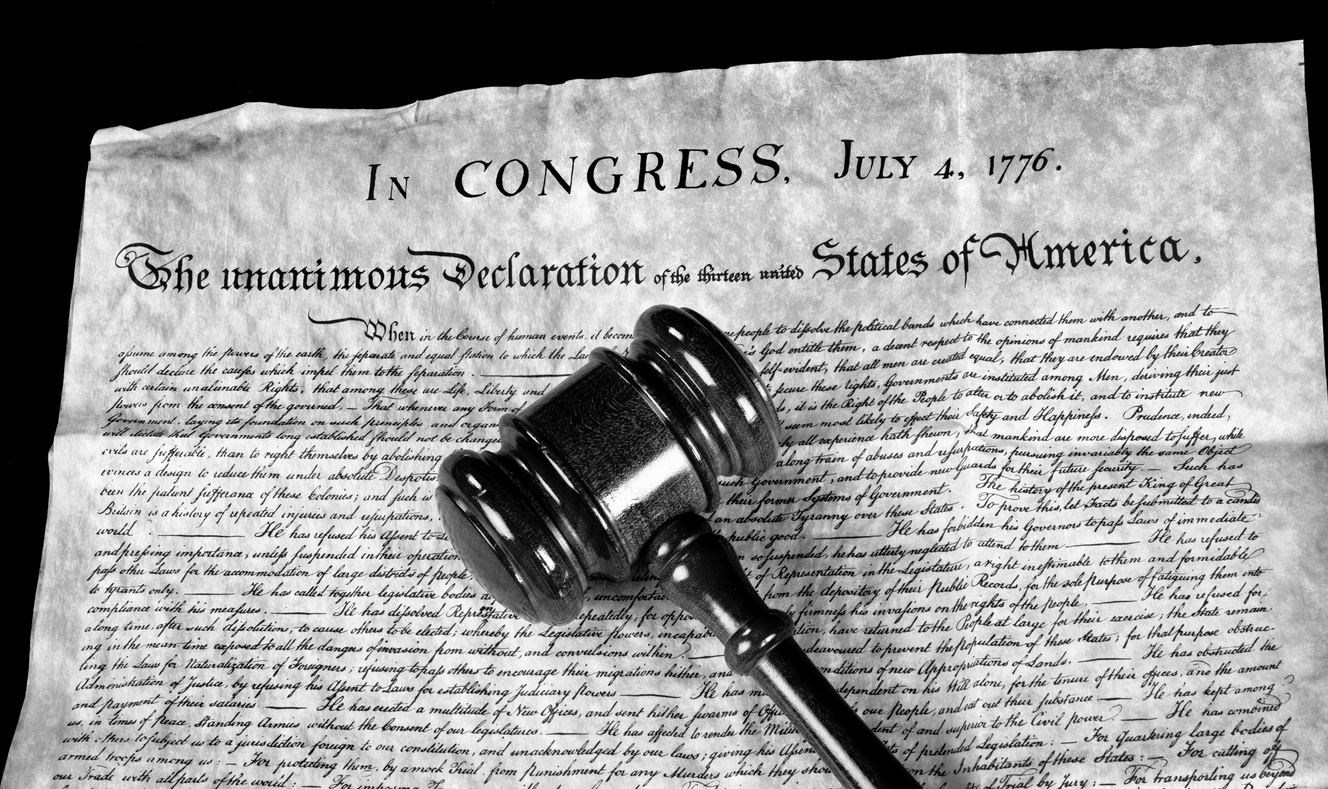 IN CONGRESS, JULY 4, 1776.
The unanimous Declaration of the thirteen united States of America.
When in the Course of human events, it becom people to dissolve the political bands which have connected them with another, and to
assume among the powers of the earth, the separate and equal station to which the La s God entitle them, a decent respect to the opinions of mankind requires that they
should declare the causes which impel them to the separation. self-evident, that all men are created equal, that they are endowed by their Creator
with certain unalienable Rights, that among these are Life, Liberty and secure these rights, Governments are instituted among Men, deriving their just
powers from the consent of the governed, — That whenever any Form of it is the Right of the People to alter or to abolish it, and to institute new
Government, laying its foundation on such principles and organ seem most likely to effect their Safety and Happiness. Prudence, indeed,
will dictate that Governments long established should not be change all experience hath shewn, that mankind are more disposed to suffer, while
evils are sufferable, than to right themselves by abolishing a long train of abuses and usurpations, pursuing invariably the same Object
evinces a design to reduce them under absolute Despotis such Government, and to provide new Guards for their future security. — Such has
been the patient sufferance of these Colonies; and such is their former Systems of Government. The history of the present King of Great
Britain is a history of repeated injuries and usurpations, an absolute Tyranny over these States. To prove this, let Facts be submitted to a candid
world. He has refused his Assent to public good. He has forbidden his Governors to pass Laws of immediate
and pressing importance, unless suspended in their operation so suspended, he has utterly neglected to attend to them He has refused to
pass other Laws for the accommodation of large districts of people, of Representation in the Legislature, a right inestimable to them and formidable
to tyrants only. He has called together legislative bodies a uncomfortab from the depository of their Public Records, for the sole purpose of fatiguing them into
compliance with his measures. He has dissolved Representative repeatedly, for oppos firmness his invasions on the rights of the people. He has refused for
a long time, after such dissolutions, to cause others to be elected; whereby the Legislative powers, incapab have returned to the People at large for their exercise; the State remain
ing in the mean time exposed to all the dangers of invasion from without, and convulsions within. deavoured to prevent the population of these States; for that purpose obstruc-
ting the Laws for Naturalization of Foreigners; refusing to pass others to encourage their migrations hither, and onditions of new Appropriations of Lands. He has obstructed the
Administration of Justice, by refusing his Assent to Laws for establishing Judiciary powers He has m dependent on his Will alone, for the tenure of their offices, and the amount
and payment of their salaries He has erected a multitude of New Offices, and sent hither swarms of Offic our people, and eat out their substance He has kept among
us, in times of peace, Standing Armies without the Consent of our legislatures. He has affected to render the Milita dent of and superior to the Civil power. He has combined
with others to subject us to a jurisdiction foreign to our constitution, and unacknowledged by our laws; giving his Assent ts of pretended Legislation: — For quartering large bodies of
armed troops among us: — For protecting them, by a mock Trial, from punishment for any Murders which they shou on the Inhabitants of these States: — For cutting off
our Trade with all parts of the world: — For imposing of Trial by Jury: — For transporting us beyond